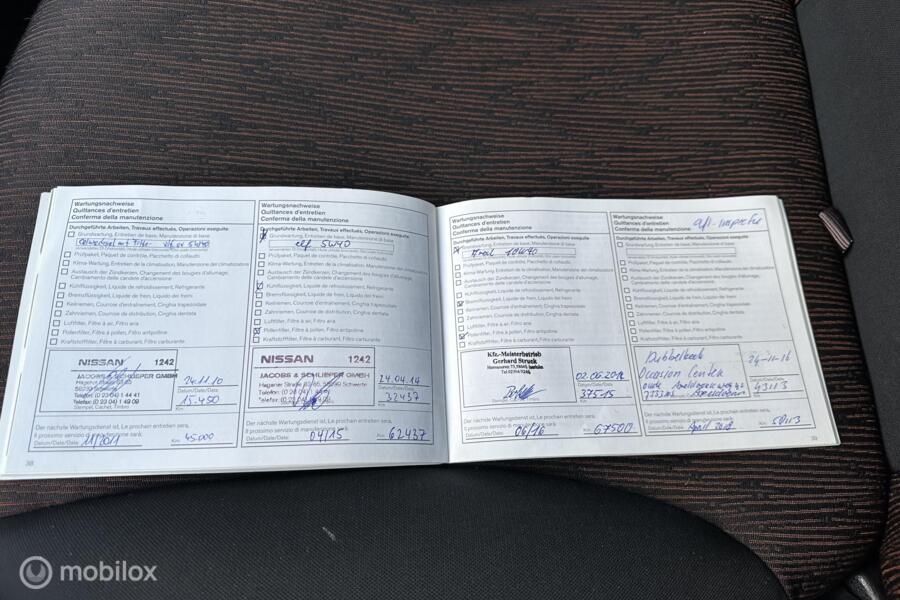 Wartungsnachweise
Quittances d'entretien
Conferma della manutenzione
Durchgeführte Arbeiten, Travaux effectués, Operazioni eseguite
Grundwartung, Entretien de base, Manutenzione di base
Ölwechsel mit Filter 5W40
Prüfpaket, Paquet de contrôle, Pacchetto di collaudi
Klima-Wartung, Entretien de la climatisation, Manutenzione del climatizzatore
Austausch der Zündkerzen, Changement des bougies d'allumage,
Cambiamento delle candele d'accensione
Kühlflüssigkeit, Liquide de refroidissement, Refrigerante
Bremsflüssigkeit, Liquide de frein, Liquido dei freni
Keilriemen, Courroie d'entraînement, Cinghia trapezoidale
Zahnriemen, Courroie de distribution, Cinghia dentata
Luftfilter, Filtre à air, Filtro aria
Pollenfilter, Filtre à pollen, Filtro antipolline
Kraftstofffilter, Filtre à carburant, Filtro carburante
NISSAN 1242
JACOBS & SCHLIEPER GMBH
Telefon: (0 23 04) 1 44 41
Telefax: (0 23 04) 1 49 09
Stempel, Cachet, Timbro
24.11.10
Datum/Date/Data
15.450
Km
Der nächste Wartungsdienst ist, Le prochain entretien sera,
Il prossimo servizio di manutenzione sarà:
Datum/Date/Data: 11/2011 Km: 45000
38
Wartungsnachweise
Quittances d'entretien
Conferma della manutenzione
Durchgeführte Arbeiten, Travaux effectués, Operazioni eseguite
Grundwartung, Entretien de base, Manutenzione di base
elf 5W40
Prüfpaket, Paquet de contrôle, Pacchetto di collaudi
Klima-Wartung, Entretien de la climatisation, Manutenzione del climatizzatore
Austausch der Zündkerzen, Changement des bougies d'allumage,
Cambiamento delle candele d'accensione
Kühlflüssigkeit, Liquide de refroidissement, Refrigerante
Bremsflüssigkeit, Liquide de frein, Liquido dei freni
Keilriemen, Courroie d'entraînement, Cinghia trapezoidale
Zahnriemen, Courroie de distribution, Cinghia dentata
Luftfilter, Filtre à air, Filtro aria
Pollenfilter, Filtre à pollen, Filtro antipolline
Kraftstofffilter, Filtre à carburant, Filtro carburante
NISSAN 1242
JACOBS & SCHLIEPER GMBH
Hagener Straße 83-85, 58239 Schwerte
Telefon: (0 23 04)
Telefax: (0 23 04)
Stempel, Cachet, Timbro
24.04.14
Datum/Date/Data
32437
Km
Der nächste Wartungsdienst ist, Le prochain entretien sera,
Il prossimo servizio di manutenzione sarà:
Datum/Date/Data: 04/15 Km: 62437
Wartungsnachweise
Quittances d'entretien
Conferma della manutenzione
Durchgeführte Arbeiten, Travaux effectués, Operazioni eseguite
Grundwartung, Entretien de base, Manutenzione di base
10W40
Prüfpaket, Paquet de contrôle, Pacchetto di collaudi
Klima-Wartung, Entretien de la climatisation, Manutenzione del climatizzatore
Austausch der Zündkerzen, Changement des bougies d'allumage,
Cambiamento delle candele d'accensione
Kühlflüssigkeit, Liquide de refroidissement, Refrigerante
Bremsflüssigkeit, Liquide de frein, Liquido dei freni
Keilriemen, Courroie d'entraînement, Cinghia trapezoidale
Zahnriemen, Courroie de distribution, Cinghia dentata
Luftfilter, Filtre à air, Filtro aria
Pollenfilter, Filtre à pollen, Filtro antipolline
Kraftstofffilter, Filtre à carburant, Filtro carburante
Kfz.-Meisterbetrieb
Gerhard Struck
Datum/Date/Data
37515
Km
Der nächste Wartungsdienst ist, Le prochain entretien sera,
Il prossimo servizio di manutenzione sarà:
Datum/Date/Data: 06/16 Km: 67500
Wartungsnachweise
Quittances d'entretien
Conferma della manutenzione
Durchgeführte Arbeiten, Travaux effectués, Operazioni eseguite
Grundwartung, Entretien de base, Manutenzione di base
Prüfpaket, Paquet de contrôle, Pacchetto di collaudi
Klima-Wartung, Entretien de la climatisation, Manutenzione del climatizzatore
Austausch der Zündkerzen, Changement des bougies d'allumage,
Cambiamento delle candele d'accensione
Kühlflüssigkeit, Liquide de refroidissement, Refrigerante
Bremsflüssigkeit, Liquide de frein, Liquido dei freni
Keilriemen, Courroie d'entraînement, Cinghia trapezoidale
Zahnriemen, Courroie de distribution, Cinghia dentata
Luftfilter, Filtre à air, Filtro aria
Pollenfilter, Filtre à pollen, Filtro antipolline
Kraftstofffilter, Filtre à carburant, Filtro carburante
Occasion Center
24-11-16
Datum/Date/Data
43113
Km
Der nächste Wartungsdienst ist, Le prochain entretien sera,
Il prossimo servizio di manutenzione sarà:
Datum/Date/Data: April Km:
39
mobilox